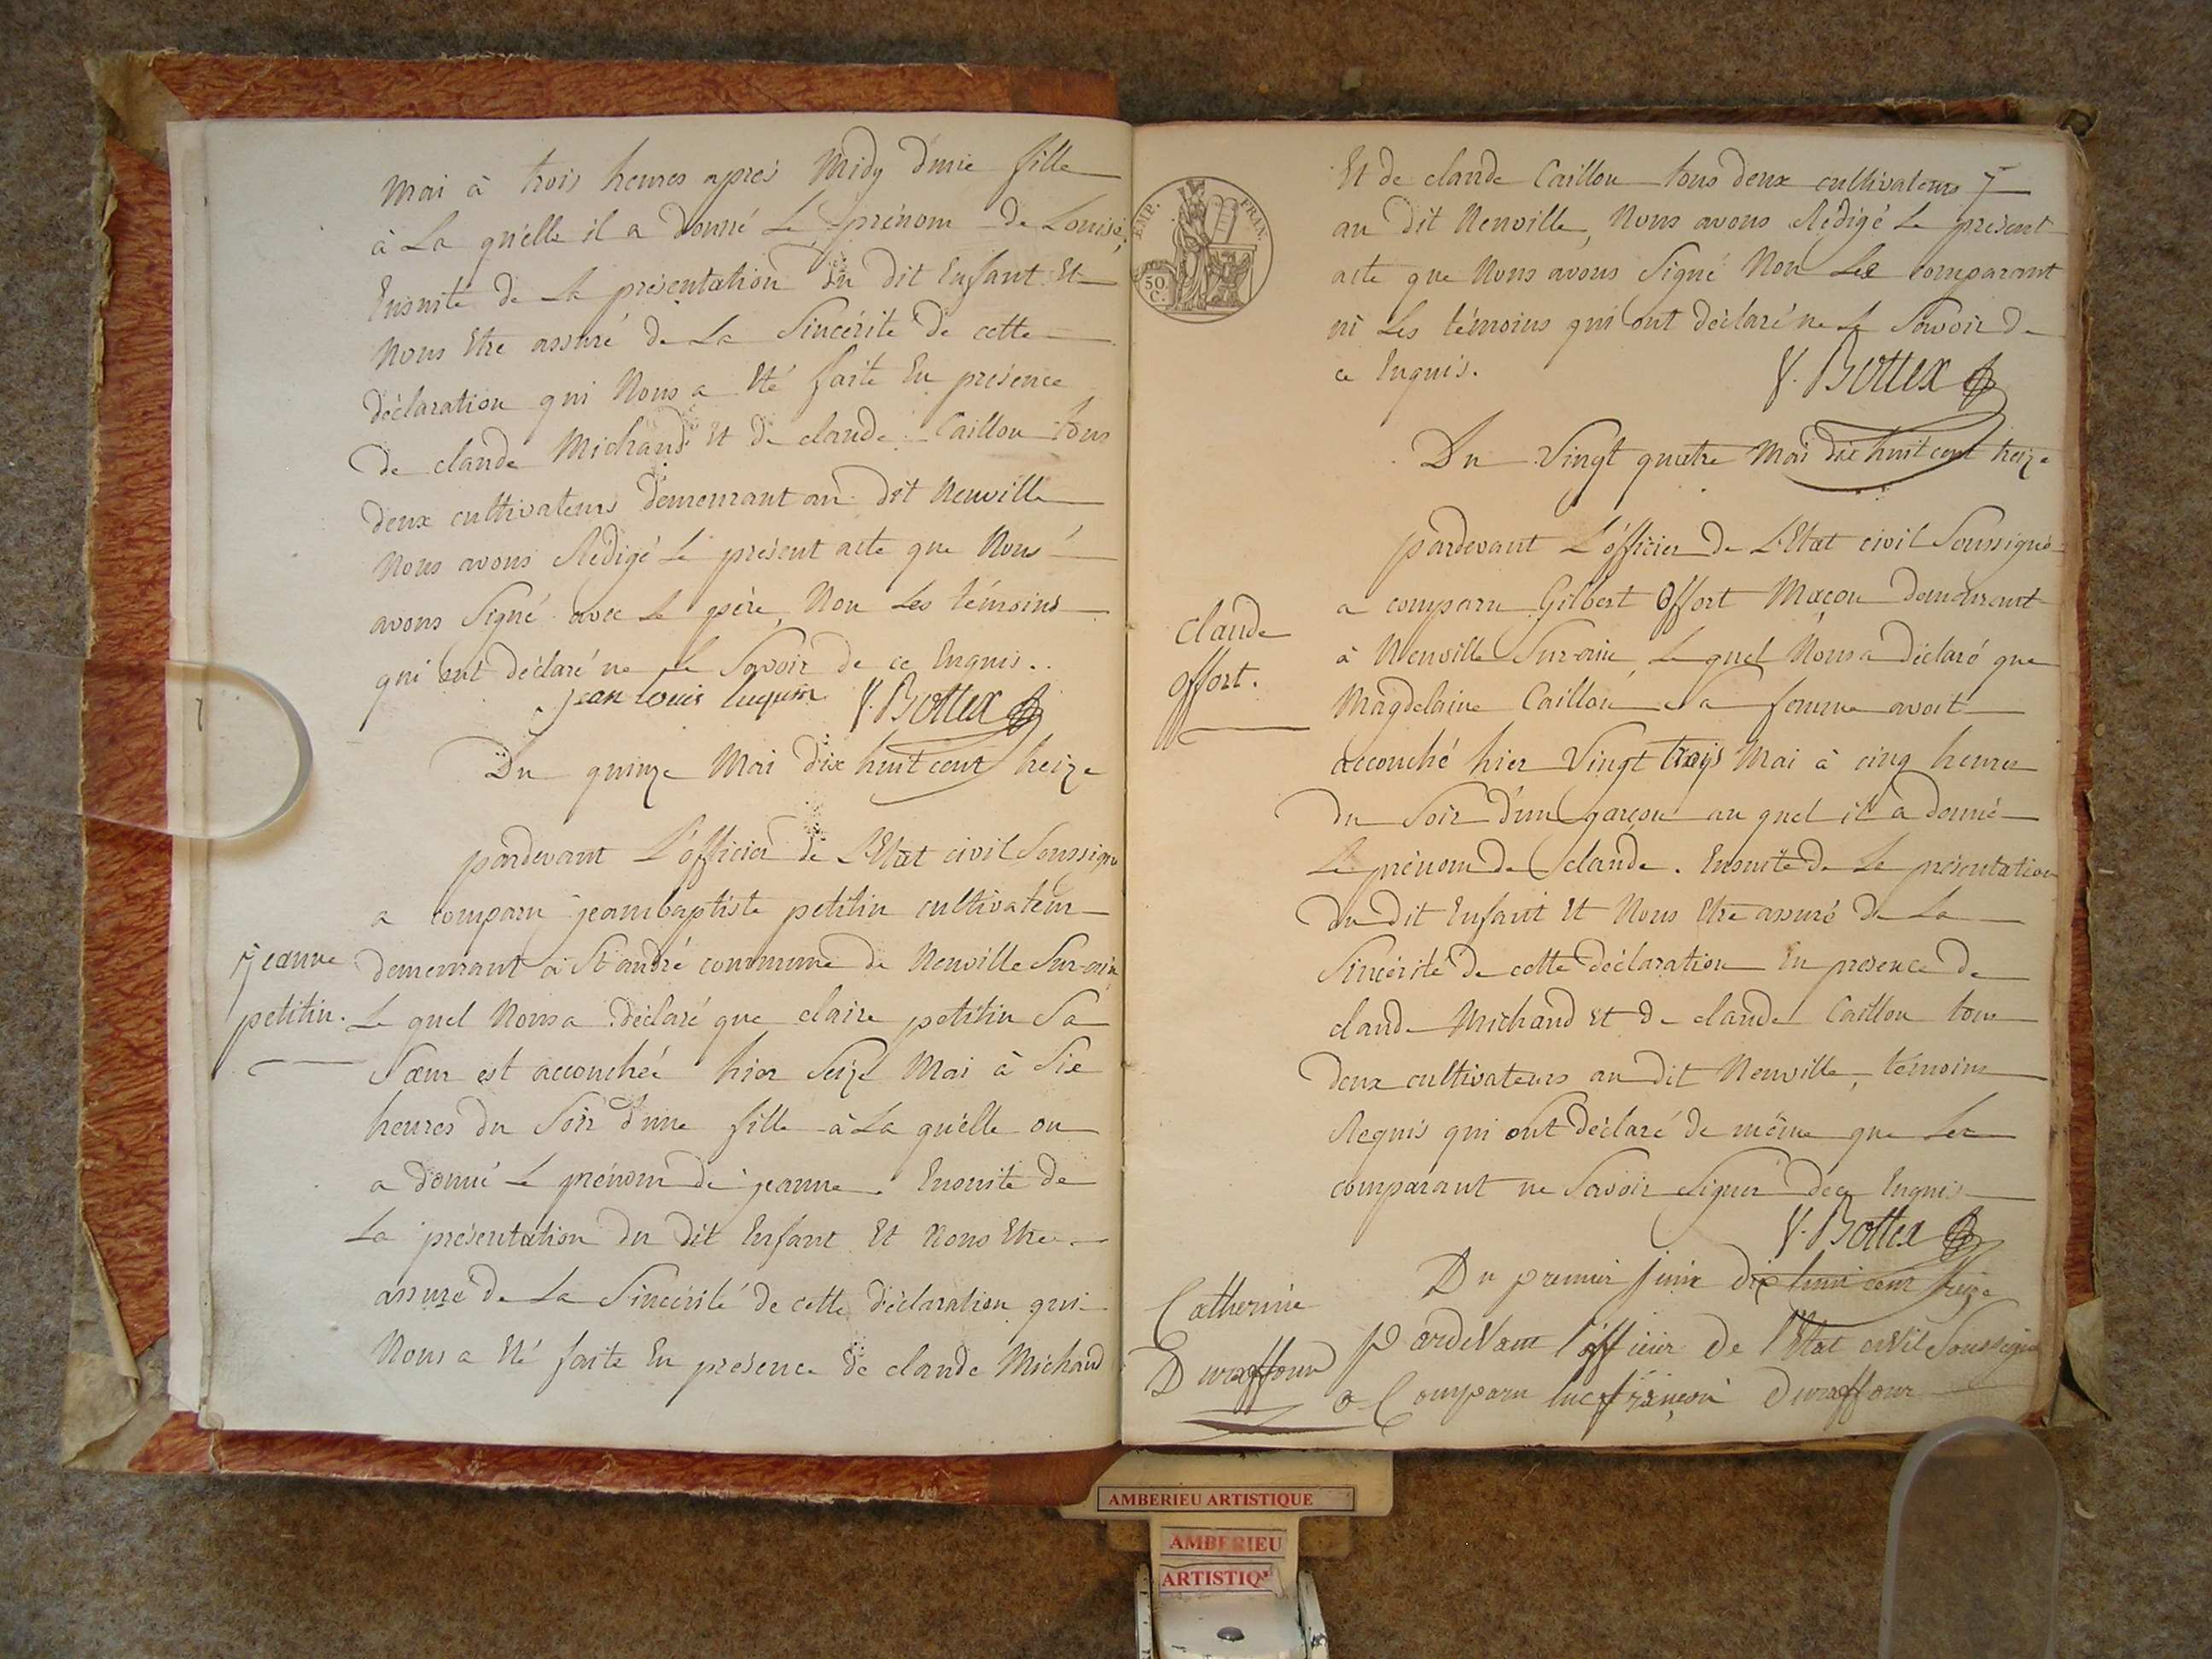 Mai à trois heures après Midy d'une fille
à La quelle il a donné Le prénom de Louise,
Ensuite de La présentation du dit Enfant Et
Nous Etre assuré de La Sincérité de cette
déclaration qui Nous a Eté faite En présence
de claude Michaud Et de claude Caillou tous
deux cultivateurs demeurant au dit Neuville
Nous avons Rédigé Le présent acte que Nous
avons Signé avec Le père, Non Les témoins
qui ont déclaré ne Le Savoir de ce Enquis..
jean Louis V. Bottex
Du quinze Mai dix huit cent treize
pardevant L'officier de L'Etat civil Soussigné
a comparu jeanbaptiste petitin cultivateur
jeanne
petitin.
demeurant à St andré commune de Neuville Sur-ain
Le quel Nous a déclaré que claire petitin Sa
Sœur est accouchée hier Seize Mai à Six
heures du Soir d'une fille à La quelle on
a donné Le prénom de jeanne. Ensuite de
La présentation du dit Enfant Et Nous Etre
assuré de La Sincérité de cette déclaration qui
Nous a Eté faite En présence de claude Michaud
EMP. FRAN.
50
C.
Et de claude Caillou tous deux cultivateurs
au dit Neuville, Nous avons Rédigé Le présent
acte que Nous avons Signé Non Le comparant
ni Les témoins qui ont déclaré ne Le Savoir de
ce Enquis.
V. Bottex
Du Vingt quatre Mai dix huit cent treize
pardevant L'officier de L'Etat civil Soussigné
claude
offort.
a comparu Gilbert Offort Maçon demeurant
à Neuville Sur-ain Le quel Nous a déclaré que
Magdelaine Caillou Sa femme avoit
accouché hier Vingt trois Mai à cinq heures
du Soir d'un garçon au quel il a donné
Le prénom de claude. Ensuite de La présentation
du dit Enfant Et Nous Etre assuré de La
Sincérité de cette déclaration En présence de
claude Michaud Et de claude Caillou tous
deux cultivateurs au dit Neuville, témoins
Requis qui ont déclaré de même que Le
comparant ne Savoir Signer de ce Enquis
V. Bottex
Du premier juin dix huit cent treize
Catherine
Duraffour
Pardevant l'officier de l'Etat civil Soussigné
a Comparu françois Duraffour
AMBERIEU ARTISTIQUE
AMBERIEU
ARTISTIQ